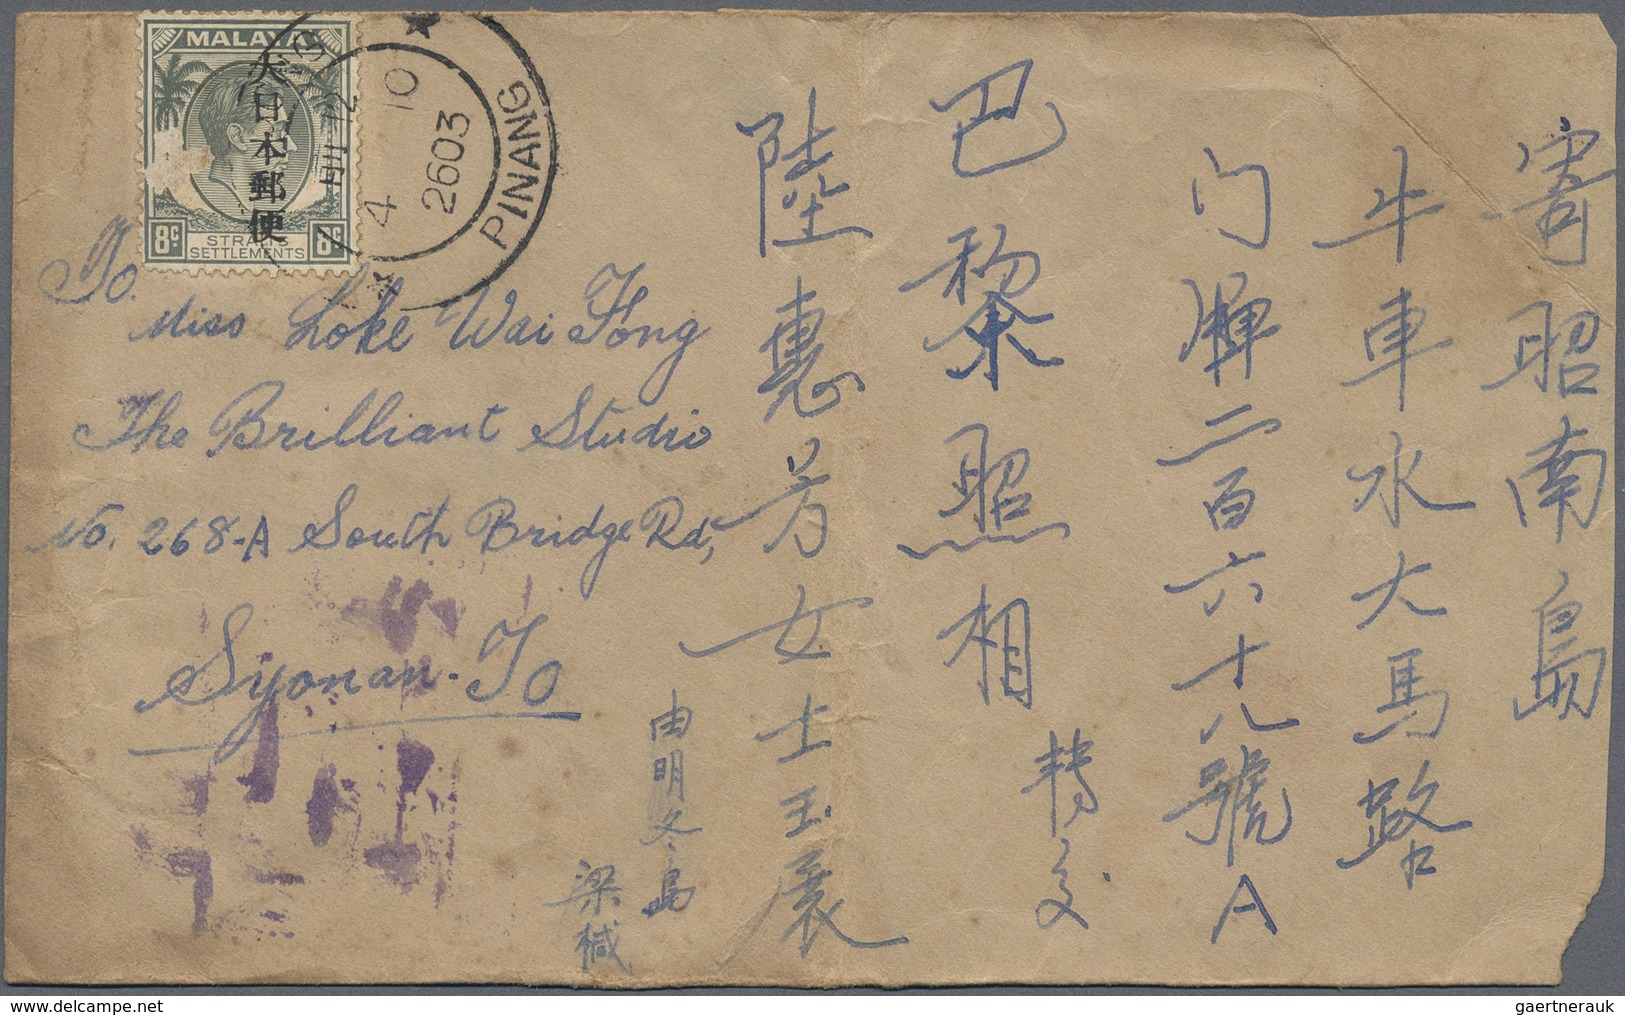 MALAYA
大日本郵便
8c 8c
STRAITS
SETTLEMENTS
PINANG
前 12
4 10
2603
To.
Miss Loke Wai Fong
The Brilliant Studio
No. 268-A South Bridge Rd,
Syonan-To
寄昭南島
牛車水大馬路
门牌二百六十八號A
巴黎照相
轉交
陸惠芳女士玉展
由明冬島
梁椷
gaertnerauk
oldthing.com